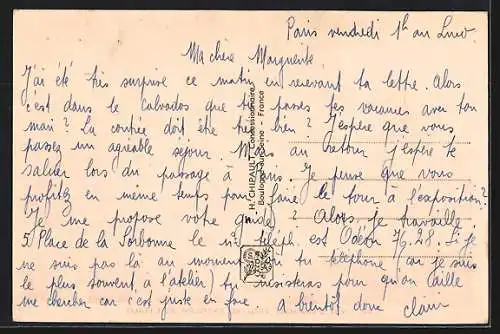 Paris vendredi 1h au Luxo
Ma chère Marguerite
J'ai été très surprise ce matin en recevant ta lettre. Alors
c'est dans le Calvados que tu passes tes vacances avec ton
mari ? La contrée doit être très bien ? J'espère que vous
passez un agréable séjour. Mais au retour j'espère te
saluer lors du passage à Paris. Je pense que vous
profitez en même temps pour faire le tour à l'exposition ?
Je me propose votre guide ? Alors je travaille
5 Place de la Sorbonne le n° téléph. est Odéon 76.28. Si je
ne suis pas là au moment où tu téléphone (car je suis
le plus souvent à l'atelier) tu insisteras pour qu'on t'aille
me chercher car c'est juste en face
à bientôt donc Claire
H. CHIPAULT, Concessionnaire
Boulogne-sur-Seine - France